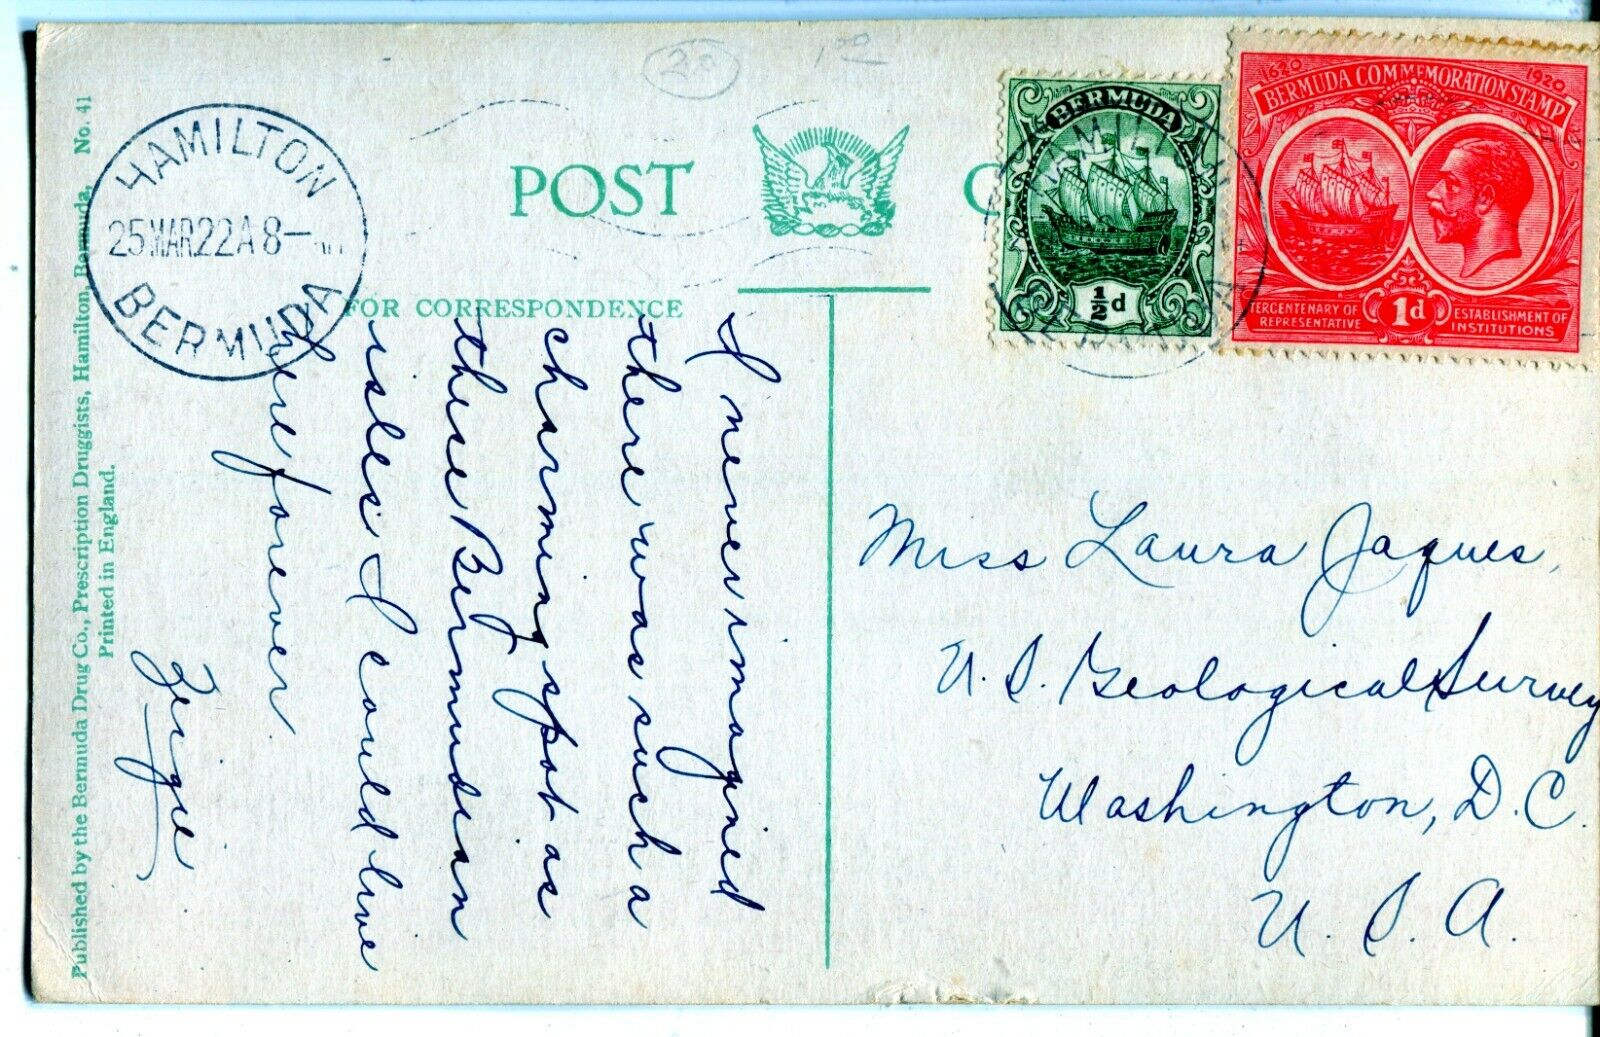 HAMILTON
25 MAR 22 A 8-
BERMUDA
20
1 00
POST C
BERMUDA
½d
1620 1920
BERMUDA COMMEMORATION STAMP
TERCENTENARY OF REPRESENTATIVE
1d
ESTABLISHMENT OF INSTITUTIONS
FOR CORRESPONDENCE
I never imagined
there was such a
charming spot as
these Bermudian
isles I could live
here forever.
Zeigie.
Miss Laura Jaques,
U. S. Geological Survey
Washington, D. C.
U. S. A.
Published by the Bermuda Drug Co., Prescription Druggists, Hamilton, Bermuda, No. 41
Printed in England.